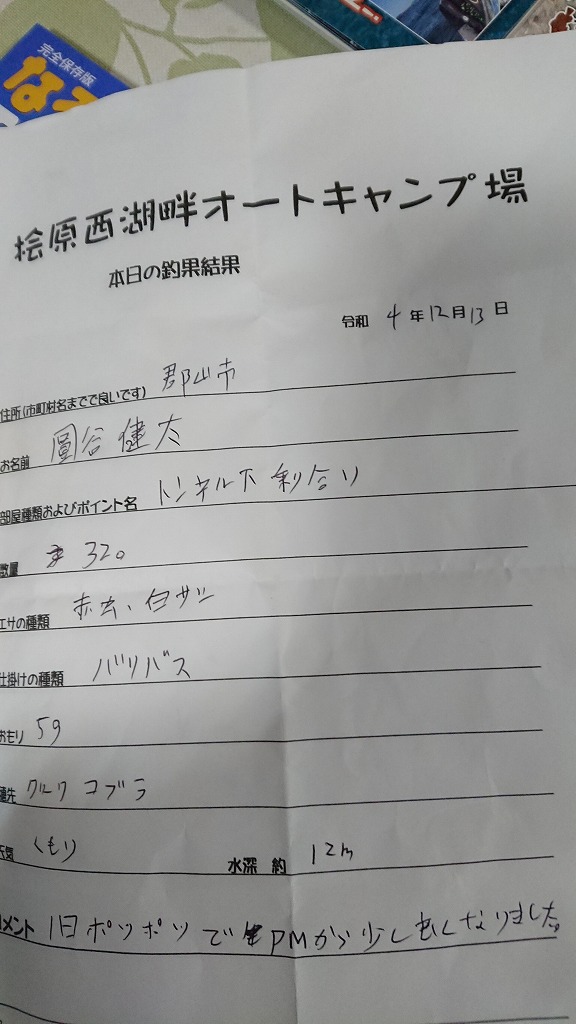 完全保存版
桧原西湖畔オートキャンプ場
本日の釣果結果
令和 4 年 12 月 13 日
住所(市町村名までで良いです) 郡山市
お名前 圓谷 健太
部屋種類およびポイント名 トンネル下 乗合い
数量 320
エサの種類 赤虫、白サシ
仕掛けの種類 バリバス
おもり 5g
穂先 クルーク コブラ
天気 くもり 水深 約 12m
コメント 1日ポツポツで PMから少し良くなりました。